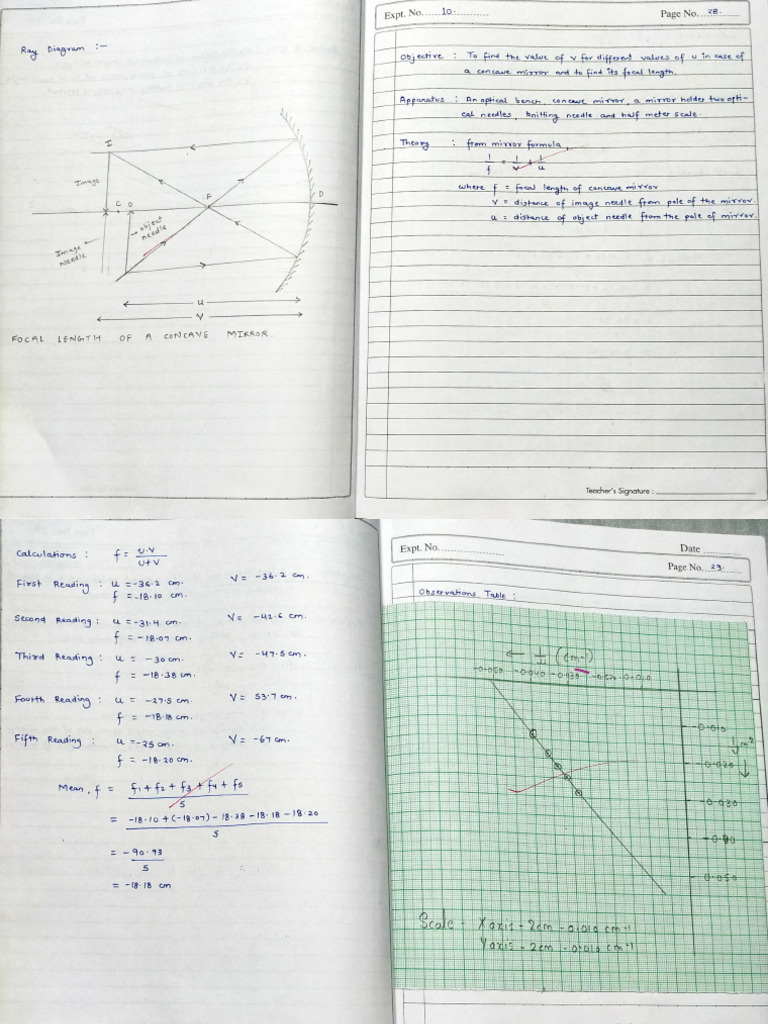 Ray Diagram :-
I
Image
C
O
F
D
object
needle
Image
Needle
u
v
FOCAL LENGTH OF A CONCAVE MIRROR.
Expt. No. 10. Page No. 28.
Objective : To find the value of v for different values of u in case of
a concave mirror and to find its focal length.
Apparatus : An optical bench, concave mirror, a mirror holder two opti-
cal needles, knitting needle and half meter scale.
Theory : from mirror formula,
1/f = 1/v + 1/u
where f = focal length of concave mirror
v = distance of image needle from pole of the mirror.
u = distance of object needle from the pole of mirror.
Teacher's Signature :
Calculations : f = u.v/u+v
First Reading : u = -36.2 cm. V = -36.2 cm.
f = -18.10 cm.
Second Reading : u = -31.4 cm. V = -42.6 cm.
f = -18.07 cm.
Third Reading : u = -30 cm. V = -47.5 cm.
f = -18.38 cm.
Fourth Reading : u = -27.5 cm. V = 53.7 cm.
f = -18.18 cm.
Fifth Reading : u = -25 cm. V = -67 cm.
f = -18.20 cm.
Mean, f = f1 + f2 + f3 + f4 + f5/5
= -18.10 + (-18.07) - 18.38 - 18.18 - 18.20/5
= -90.93/5
= -18.18 cm
Expt. No. Date
Page No. 29.
Observations Table :
← 1/u (cm-1)
-0.050 -0.040 -0.030 -0.020 -0.010
-0.010
-0.020
-0.030
-0.040
-0.050
Scale - X axis - 2cm - 0.010 cm-1
Y axis - 2cm - 0.010 cm-1